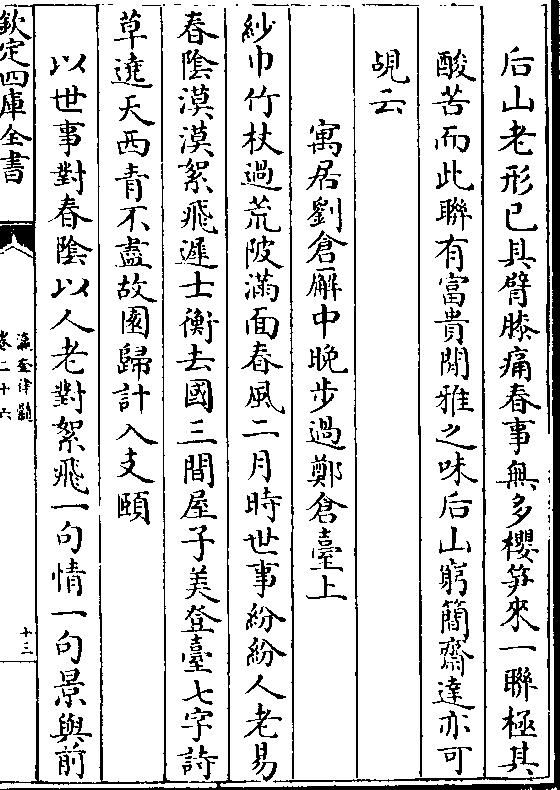 后山老形已具臂膝痛春事無多櫻笋來一聯極其
酸苦而此聯有富貴閒雅之味后山窮簡齋達亦可
覘云
寓居劉倉廨中晚步過鄭倉臺上
紗巾竹杖過荒陂滿面春風二月時世事紛紛人老易
春陰漠漠絮飛遲士衡去國三間屋子美登臺七字詩
草遶天西青不盡故園歸計入支頤
以世事對春陰以人老對絮飛一句情一句景與前
欽定四庫全書
瀛奎律髓
卷二十六
十三